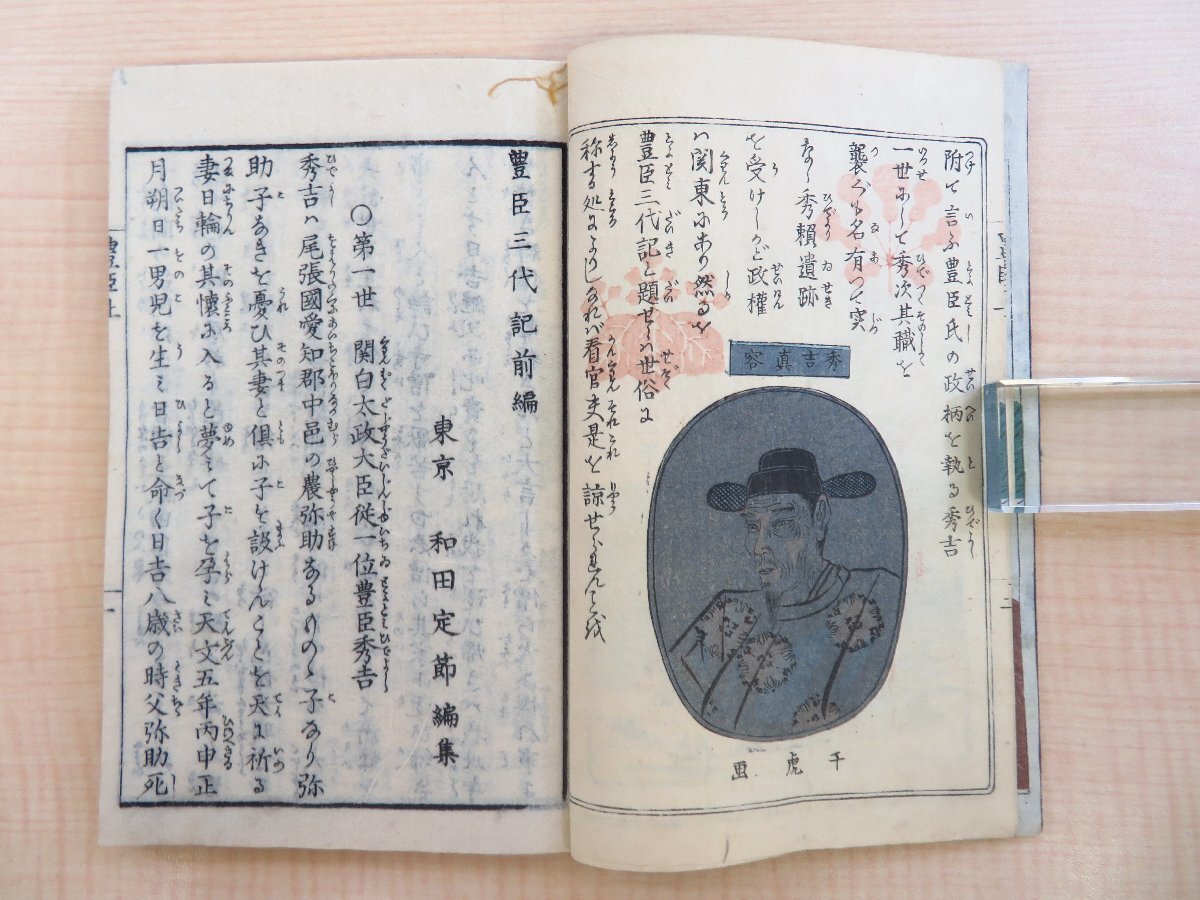 附て言ふ豊臣氏の政柄を執る秀吉
一世にして秀次其職を
襲ぐも名有つて実
なし秀頼遺跡
を受けしかど政權
ハ関東にあり然るを
豊臣三代記と題せしハ世俗に
称する処によりしなれバ看官夫是を諒せられんことを
秀吉真容
千虎画
豊臣三代記前編
東京 和田定節編集
○第一世 関白太政大臣従一位豊臣秀吉
秀吉ハ尾張國愛知郡中邑の農弥助なるものゝ子なり弥
助子なきを憂ひ其妻と倶に子を設けんことを天に祈る
妻日輪の其懐に入ると夢ミて子を孕ミ天文五年丙申正
月朔日一男児を生ミ日吉と命く日吉八歳の時父弥助死